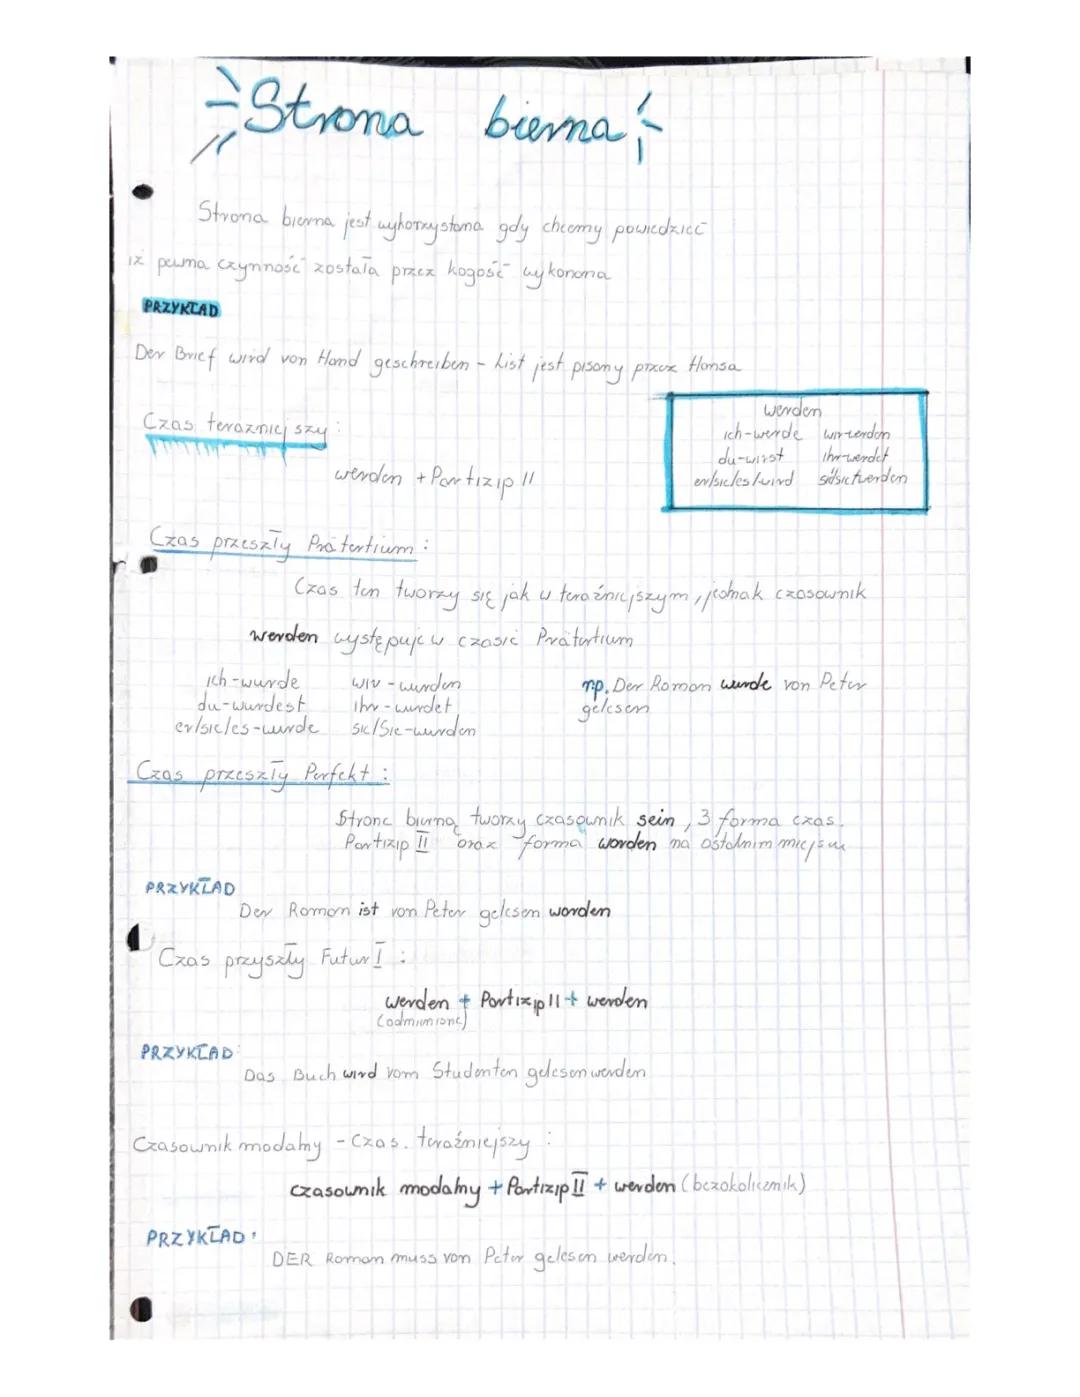 Strona bierna
Strona bierna jest wykorzystana gdy chcemy powiedzieć
iż pewna czynność została przez kogość wykonana
PRZYKŁAD
Der Brief wird von Hand geschreiben - List jest pisany przez Hansa
Czas terazniejszy :
werden + Partizip II
werden
ich-werde wir-werden
du-wirst Ihr-werdet
er/sie/es/wird sie/sie werden
Czas przeszły Prätertium :
Czas ten tworzy się jak w teraźniejszym, jednak czasownik
werden występuje w czasie Prätertium
ich-wurde wir-wurden
du-wurdest ihr-wurdet
er/sie/es-wurde sie/Sie-wurden
np. Der Roman wurde von Peter
gelesen
Czas przeszły Perfekt :
Stronę bierną tworzy czasownik sein, 3 forma czas.
Partizip II oraz forma worden na ostatnim miejscu
PRZYKŁAD
Der Roman ist von Peter gelesen worden
Czas przyszły Futur I :
werden + Partizip II + werden
(odmienione)
PRZYKŁAD:
Das Buch wird vom Studenten gelesen werden
Czasownik modalny - Czas. teraźniejszy :
czasownik modalny + Partizip II + werden (bezokolicznik)
PRZYKŁAD:
DER Roman muss von Peter gelesen werden.